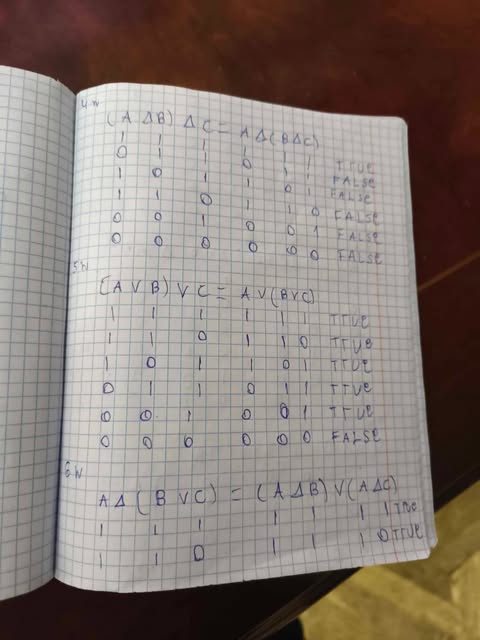 4 w
(A Δ B) Δ C = A Δ (B Δ C)
1 1 1 1 1 1 TTUE
0 1 1 0 1 1 FALSE
1 0 1 1 0 1 FALSE
1 1 0 1 1 0 FALSE
0 0 1 0 0 1 FALSE
0 0 0 0 0 0 FALSE
5 w
(A V B) V C = A V (B V C)
1 1 1 1 1 1 TTUE
1 1 0 1 1 0 TTUE
1 0 1 1 0 1 TTUE
0 1 1 0 1 1 TTUE
0 0 1 0 0 1 TTUE
0 0 0 0 0 0 FALSE
6 w
A Δ (B V C) = (A Δ B) V (A Δ C)
1 1 1 1 1 1 1 TTUE
1 1 0 1 1 1 0 TTUE